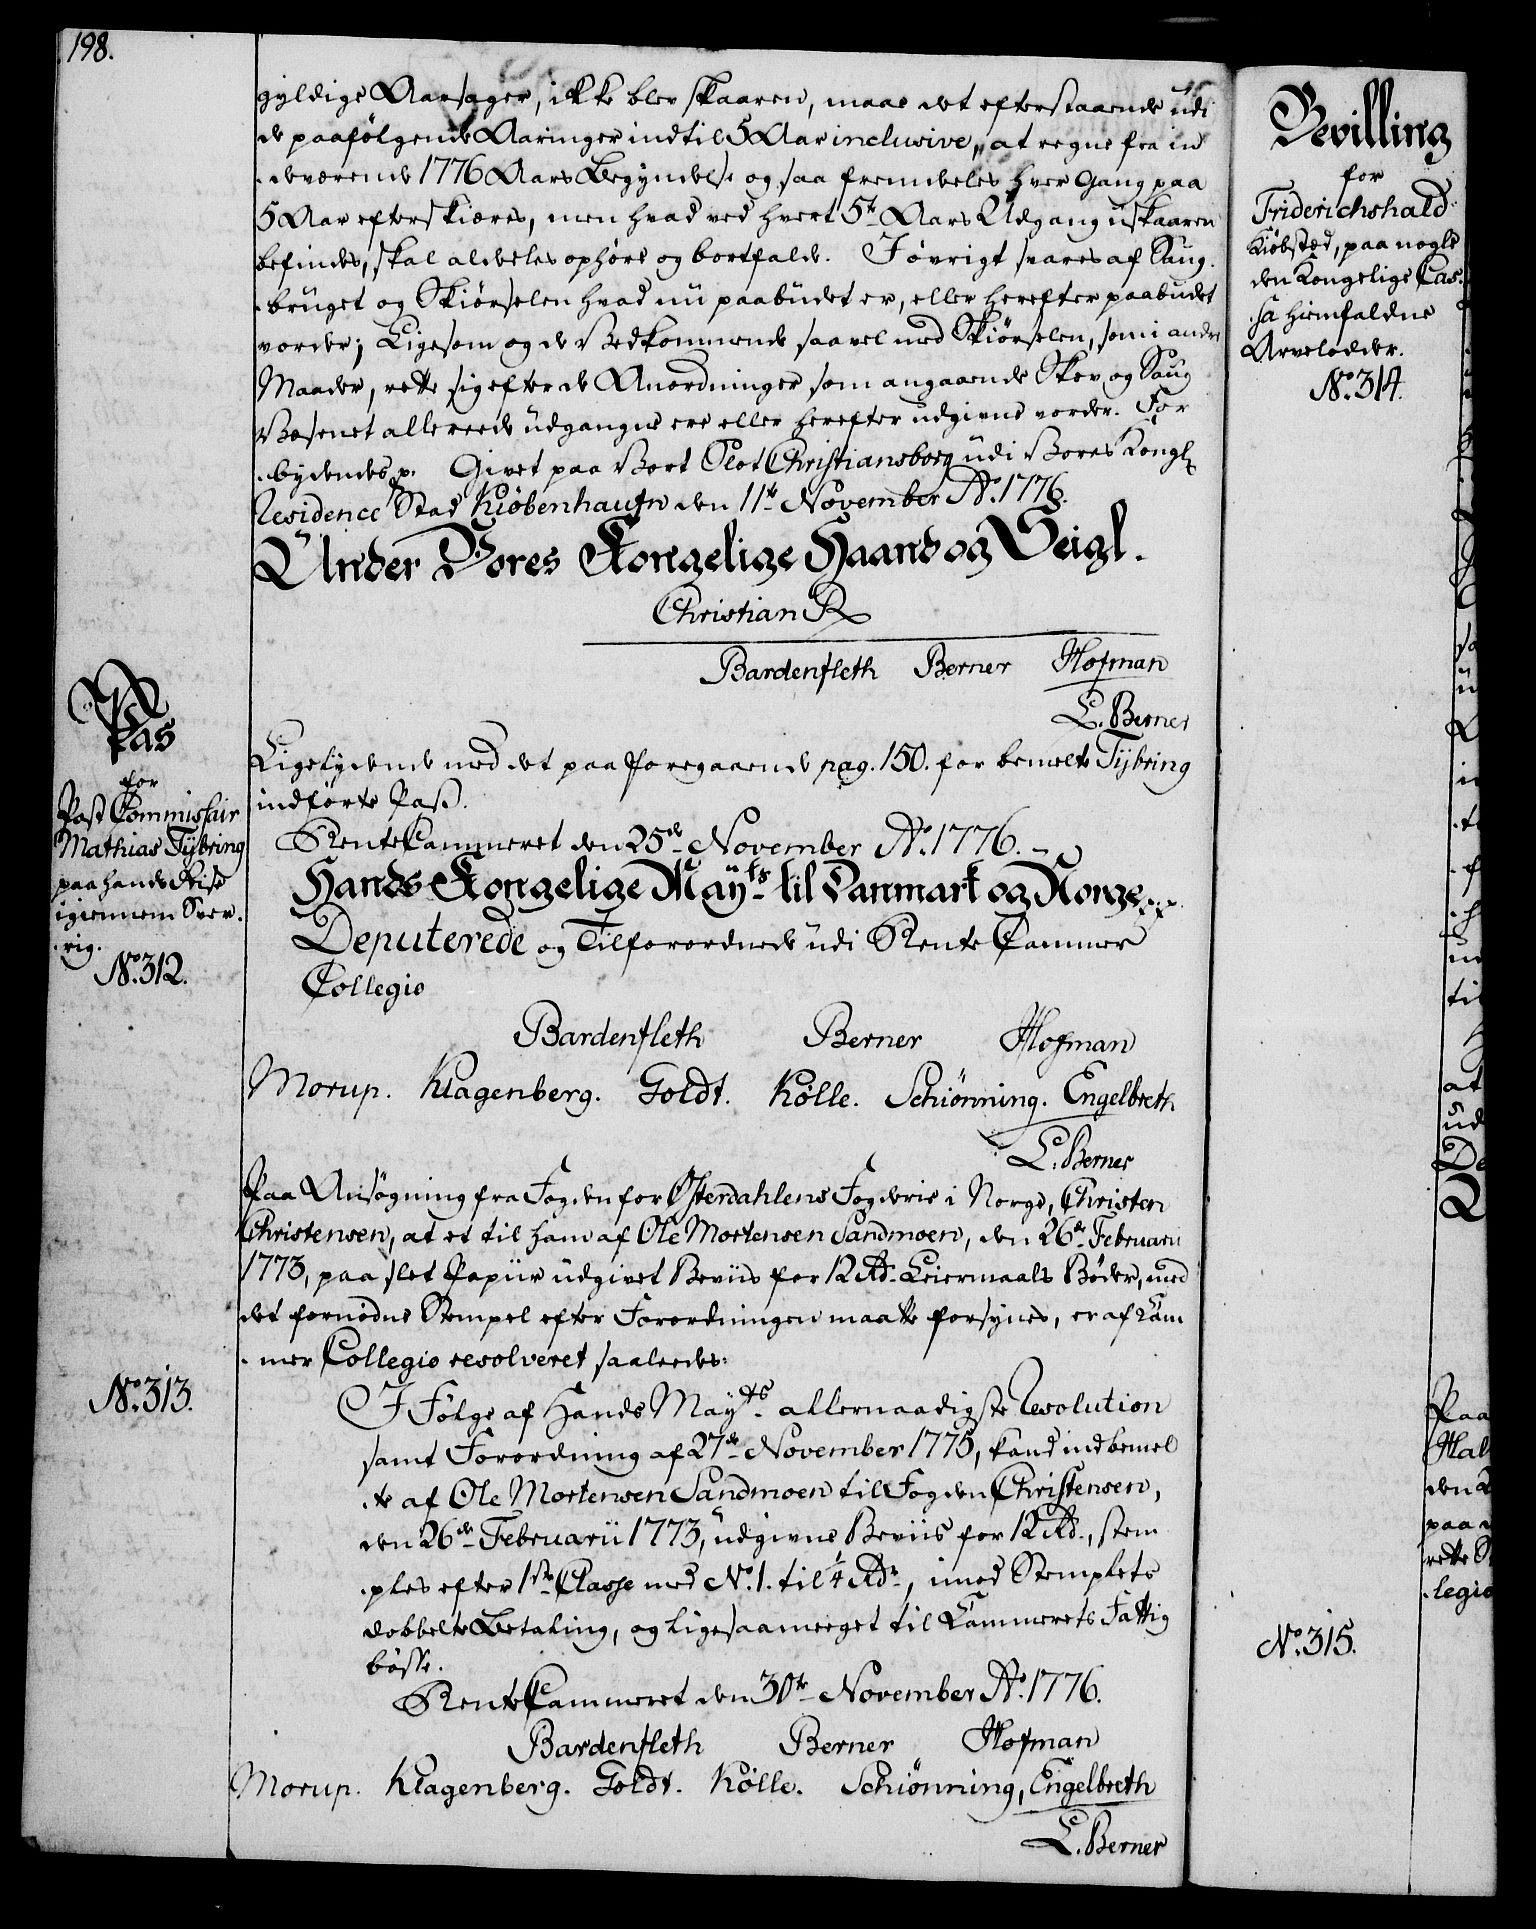 198.
gyldige Aarsager, ikke blev skaaren, maae det efterstaaende udi
de paafølgende Aaringer indtil 5 Aar inclusive, at regne fra in
-deværende 1776 Aars Begyndelse og saa fremdeles hver Gang paa
5 Aar efterskiæres, men hvad ved hvert 5te Aars Udgang uskaaren
befindes, skal aldeles ophøre og bortfalde. I øvrigt svares af Saug-
-bruget og Skiørselen hvad nu paabudet er, eller herefter paabudet
vorder; Ligesom og de Vedkommende saavel med Skiørselen, som i andre
Maader, rette sig efter de Anordninger som angaaende Skov og Saug
Væsenet allereede udgangne ere eller herefter udgivne vorder. For
-bydendes p. Givet paa Vort Slot Christiansborg udi Vores Kongl
Residence Stad Kiøbenhaufn den 11te November Ao. 1776.
Under Vores Kongelige Haand og Seigl.
Christian R
Bardenfleth Berner Hofman
L. Berner
Pas
for
Post Commissair
Mathias Tybring
paa hands Reise
igiennem Sver-
-rig.
No. 312.
Ligelydende med det paa foregaaende pag. 150. for bemelte Tybring
indførte Pass.
RenteCammeret den 25de November Ao. 1776.
Hands Kongelige Mayts til Danmark og Norge
Deputerede og Tilforordnede udi Rente Cammer
Collegio
Bardenfleth Berner Hofman
Morup. Klagenberg. Goldt. Kølle. Schiønning. Engelbreth
L. Berner
Paa Ansøgning fra Fogden for Østerdahlens Fogderie i Norge, Christen
Christensen, at et til ham af Ole Mortensen Sandmoen, den 26de Februarii
1773, paa slet Papiir udgivet Beviis for 12 Rd. Leiermaals Bøder, med
det fornødne Stempel efter Forordningen maatte forsynes, er af Kam
-mer Collegio resolveret saaledes:
No. 313.
I Følge af Hands Mayts allernaadigste Resolution
samt Forordning af 27de November 1775, kand indbemel
-te af Ole Mortensen Sandmoen til Fogden Christensen,
den 26de Februarii 1773, udgivne Beviis for 12 Rd., stem
-ples efter 1ste Classe med No. 1. til 1/4 Rdr, imod Stemplets
dobbelte Betaling, og ligesaameeget til Kammerets Fattig
bøsse.
RenteCammeret den 30te November Ao. 1776.
Bardenfleth Berner Hofman
Morup. Klagenberg. Goldt. Kølle. Schiønning, Engelbreth
L. Berner
Bevilling
for
Friderichshald
Kiøbsted, paa nogle
den Kongelige Cas-
-sa hiemfaldne
Arvelodder.
No. 314.
No. 315.
Paa
Hal
paa
rette
-legio